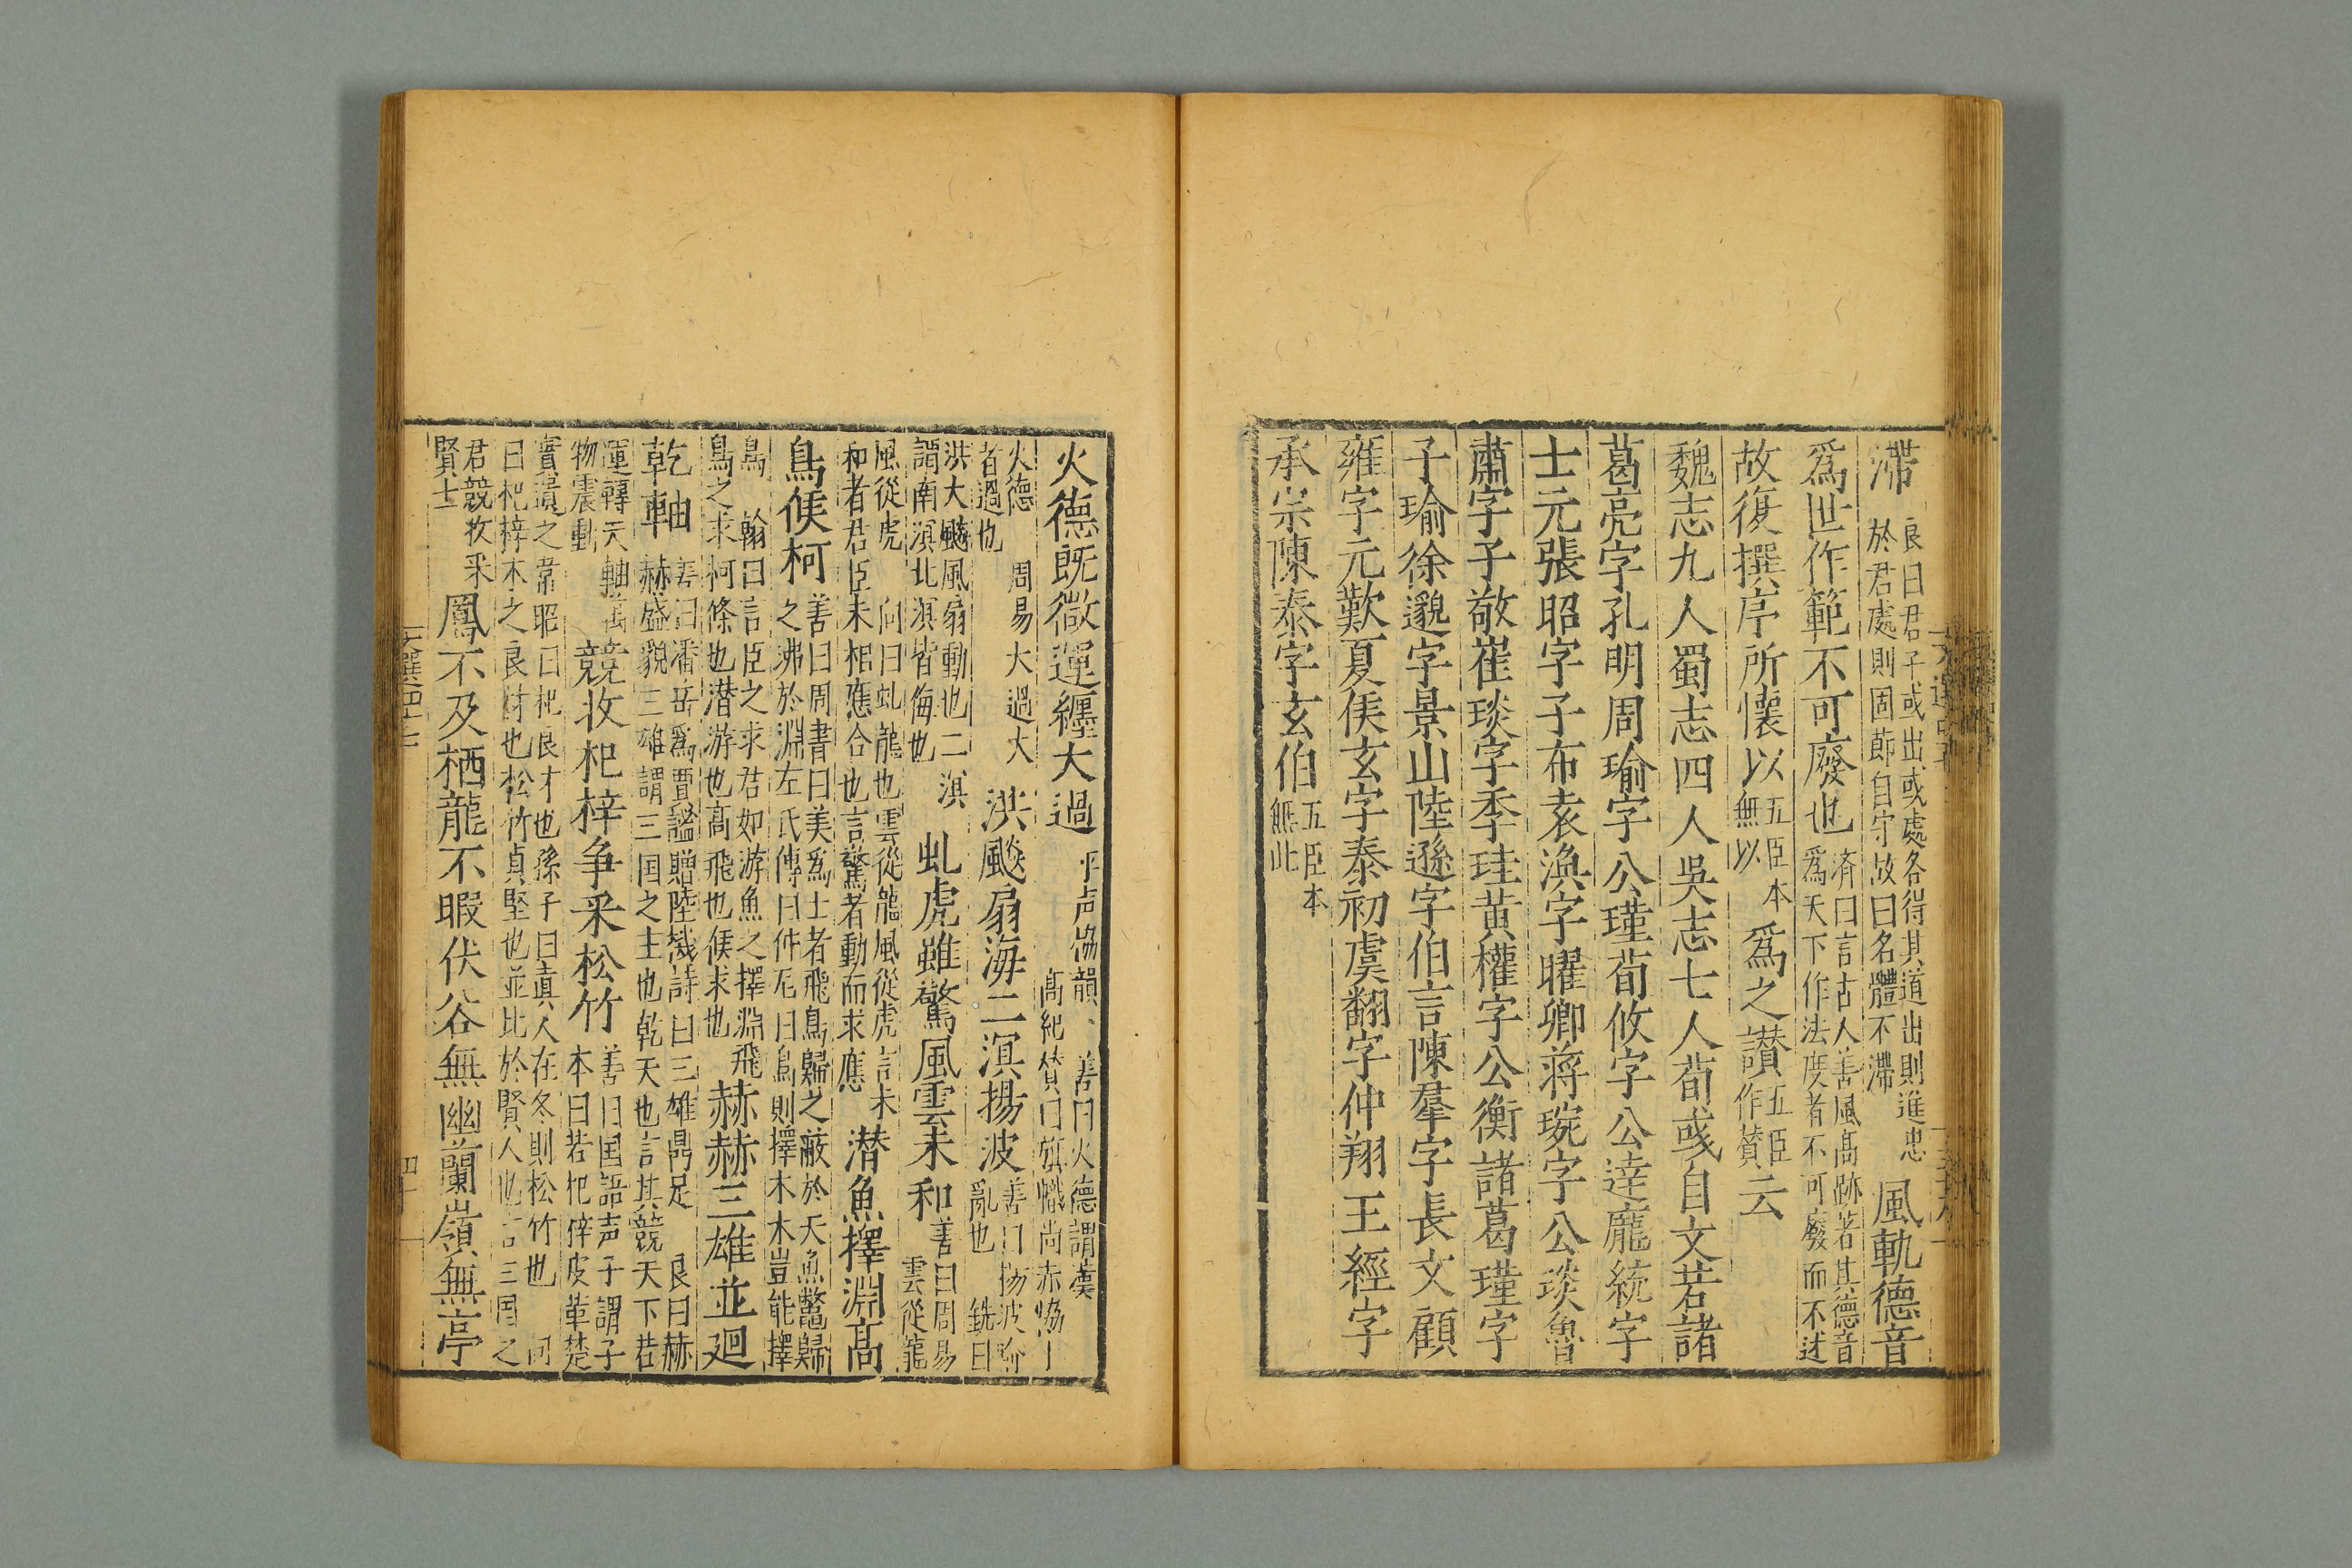 滯良曰君子或出或處各得其道出則進忠於君處則固節自守故曰名體不滯風軌德音
爲世作範不可廢也済曰言古人善風高跡著其德音爲天下作法度者不可廢而不述
故復撰序所懷以五臣本無以爲之讃五臣作賛云
魏志九人蜀志四人吳志七人荀彧自文若諸
葛亮字孔明周瑜字公瑾荀攸字公逹龐統字
士元張昭字子布袁渙字曜卿蒋琬字公琰魯
肅字子敬崔琰字季珪黃權字公衡諸葛瑾字
子瑜徐邈字景山陸遜字伯言陳羣字長文顧
雍字元歎夏侯玄字泰初虞翻字仲翔王經字
承宗陳泰字玄伯五臣本無此
火德旣微運纏大過平声協韻善曰火德謂漢髙紀賛曰旗幟尚赤協
火德者過也周易大過大洪飇扇海二溟揚波善曰揚波喻亂也銑曰
洪大飇風扇動也二溟謂南溟北溟皆海也虬虎雖驚風雲未和善曰周易雲從龍
風從虎向曰虬龍也雲從龍風從虎言未和者君臣未相應合也言驚者動而求應潜魚擇淵髙
鳥候柯善曰周書曰美爲士者飛鳥歸之蔽於天魚鼈歸之沸於淵左氏傳曰仲尼曰鳥則擇木木豈能擇
鳥翰曰言臣之求君如游魚之擇淵飛鳥之求柯條也潜游也髙飛也候求也赫赫三雄並廻
乾軸善曰潘岳爲賈謐贈陸機詩曰三雄鼎足良曰赫赫盛貌三雄謂三国之主也乾天也言其競天下若
運轉天軸萬物震動競收杞梓争采松竹善曰国語声子謂子本曰若杞梓皮革楚
實遺之韋昭曰杞良才也孫子曰真人在冬則松竹也向曰杞梓木之良材也松竹貞堅也並比於賢人也言三国之
君競收采賢士鳳不及栖龍不暇伏谷無幽蘭嶺無亭